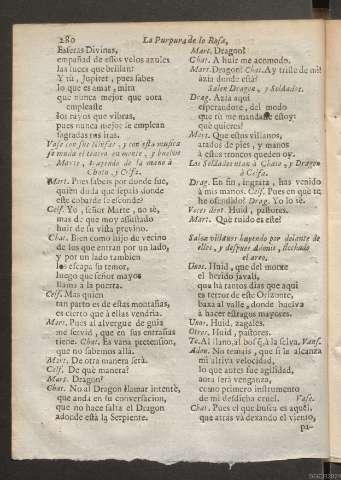 280
La Purpura de la Rosa,
Esferas Divinas,
empañad de estos velos azules
las luces que brillan:
Y tù, Jupiter, pues sabes
lo que es amar, mira
que nunca mejor que aora
empleaste
los rayos que vibras,
pues nunca mejor se emplean
sagradas tus iras.
Vase con sus Ninfas, y con esta musica
se muda el teatro en monte, y buelve
Marte, trayendo de la mano à
Chato, y Celfa.
Mart. Pues sabeis por donde fue,
quien duda que sepais donde
este cobarde se esconde?
Celf. Yo, señor Marte, no sè,
mas de que muy assustado
huir de su vista previno.
Chat. Bien como hijo de vecino
de los que entran por un lado,
y por un lado tambien
los escapa su temor,
luego que señor mayor
llama à la puerta.
Celf. Mas quien
tan parto es de estas montañas,
es cierto que à ellas vendria.
Mart. Pues al alvergue de guia
me servid, que en sus entrañas
tiene. Chat. Es vana pretension,
que no sabemos allà.
Mart. De otra manera serà.
Celf. De què manera?
Mart. Dragon?
Chat. No al Dragon llamar intente,
que anda en su conversacion,
que no hace falta el Dragon
adonde està la Serpiente.
Mart. Dragon?
Chat. A huir me acomodo.
Mart. Dragon? Chat. Ay triste de mi!
àzia donde està?
Salen Dragon, y Soldados.
Drag. Azia aqui
esperandote, del modo
que tù me mandaste estoy:
què quieres?
Mart. Que estos villanos,
atados de pies, y manos
à estos troncos queden oy.
Los Soldados atan à Chato, y Dragon
à Celfa.
Drag. En fin, ingrata, has venido
à mis manos. Celf. Pues en què te
he ofendido? Drag. Yo lo sè.
Voces dent. Huid, pastores.
Mart. Què ruido es este?
Salen villanos huyendo por delante de
ellos, y despues Adonis, flechado
el arco.
Unos. Huid, que del monte
el herido javalì,
que hà tantos dias que aqui
es terror de este Orizonte,
baxa al valle, donde buelva
à hacer estragos mayores.
Unos. Huid, zagales.
Otros. Huid, pastores.
To. Al llano, al bosq̃, à la selva. Vans.
Adon. No temais, que si la alcanza
mi altiva velocidad,
lo que antes fue agilidad,
aora serà venganza,
como primero instrumento
de mi desdicha cruel. Vase.
Chat. Pues el que busca es aquel,
que atràs và dexando el viento,
pa-